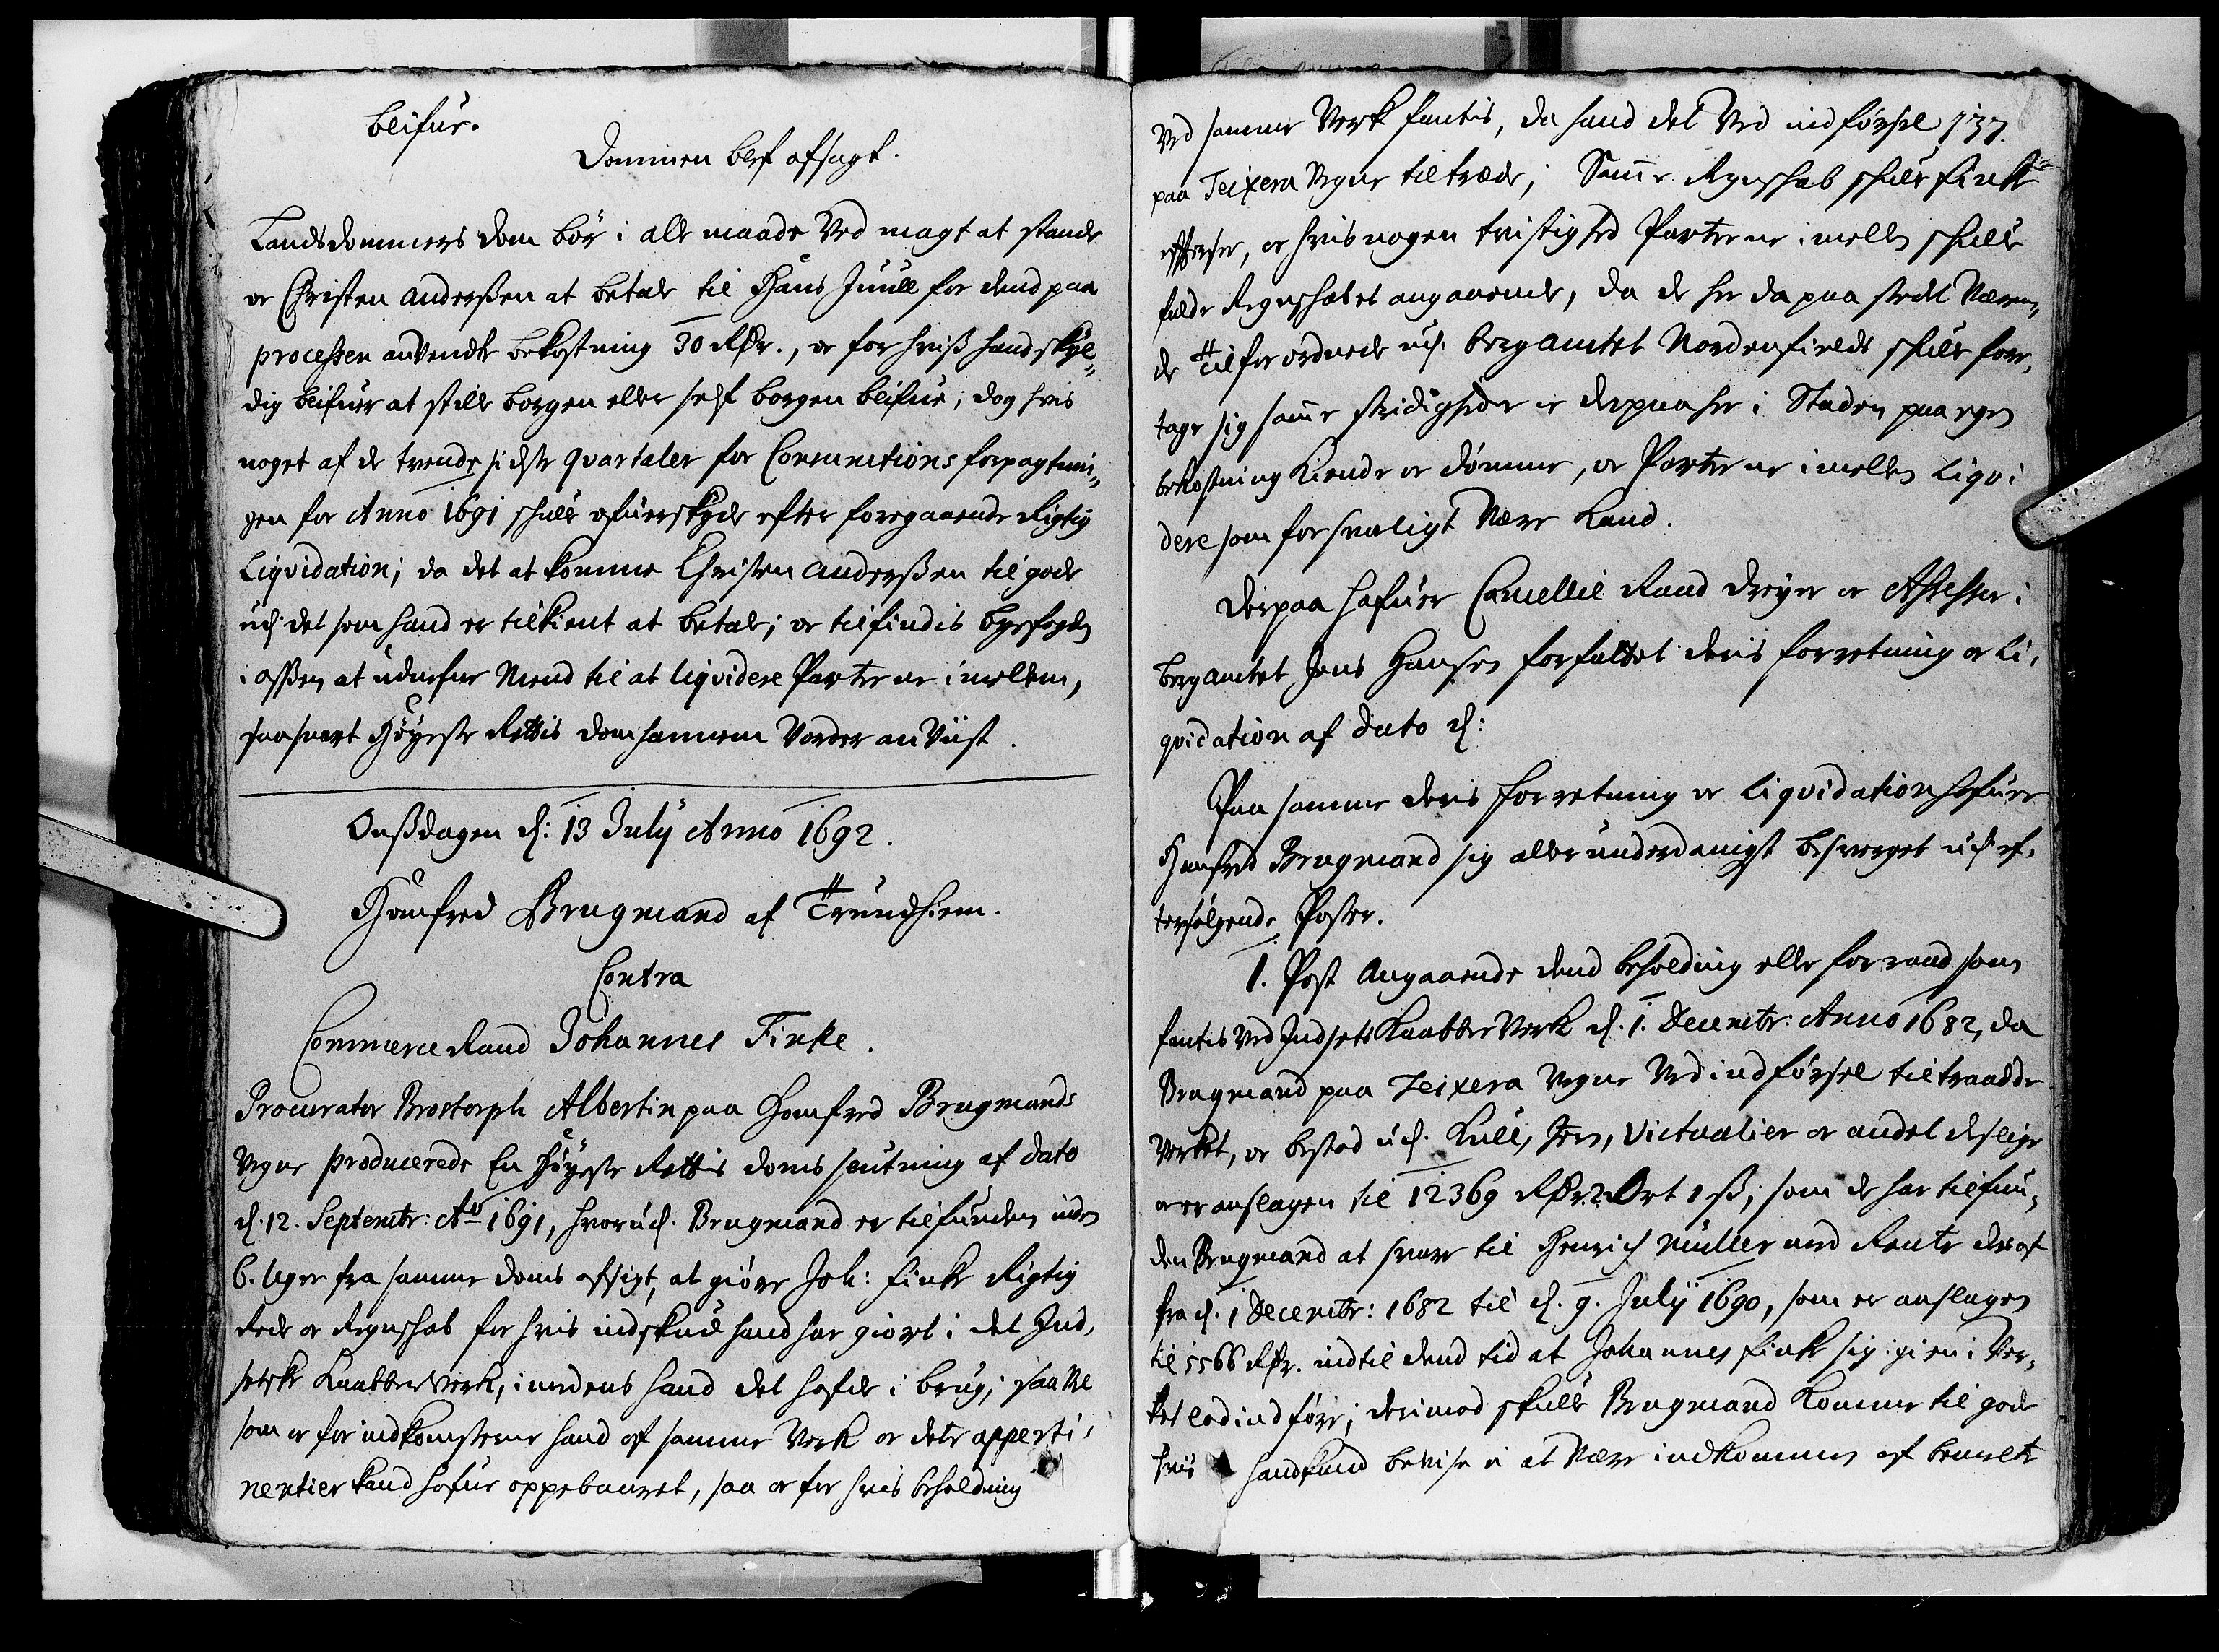 blifuer.
Dommen blef afsagt.
Landsdommers dom bør i alle maade ved magt at stande
oc Christen Anderßen at betale til Hans Juull for dend paa
processen anvendte bekostning 30 Rdr., oc for hviß hand skyl„
dig blifuer at stille borgen eller self borgen blifue; dog hvis
noget af de trende sidste quartaler for Consumtions forpagtnin„
gen for Anno 1691 skulle ofuerskyde efter foregaaende Rigtig
Liqvidation; da det at komme Christen Anderßen til gode
udj det som hand er tilkient at betale; oc tilfindis byefogden
i Aßen at udnefne Mend til at liqvidere Parterne imellem,
saasnart Høyeste Rettis dom hannem vorder anviist.
Onßdagen d: 13 July Anno 1692.
Homfred Brugmand af Trundhiem.
Contra
Commerce Raad Johannes Finke.
Procurator Brostorph Albertin paa Homfred Brugmands
vegne producerede En Høyeste Rettis doms slutning af dato
d. 12. Septembr: Ao 1691, hvorudj Brugmand er tilfunden inden
6. uger fra samme doms afsigt, at giøre Joh: Finke Rigtig
Rede oc Regnskab for hvis indskud hand har giort i det Ind„
setske Kaabberverk, imedens hand det hafde i brug; saa vel
som oc for indkomsterne hand af samme Verk oc dets apperti„
nentier kand hafue oppebaaret, saa oc for hvis beholding
ved samme Verk fantis, da hand det ved indførsel 137.
paa Teixera vegne tiltræde; Samme Regnskab skulle Finke
efftersee, oc hvis nogen tvistighed Parterne imellem skulle
falde Regnskabet angaaende, da de her da paa stedet væren„
de Tilforordnede udj bergamtet Nordenfields skulle fore„
tage sig samme stridigheder oc derpaa her i Staden paa egen
bekostning kiende oc dømme, oc Parterne imellem liqvi
dere som forsvarligt være kand.
Derpaa hafuer Cancellie Raad Dreyer oc Assessor i
bergamtet Jens Hansen forfattet deris forretning oc Li„
qvidation af dato d:
Paa samme deris forretning oc liqvidation hafuer
Homfred Brugmand sig allerunderdanigst besverget udj ef„
terfølgende Poster.
1. Post Angaaende dend beholding eller forraad som
fantis ved Indsets Kaabber Verk d. 1. Decembr: Anno 1682, da
Brugmand paa Teixera vegne ved indførsel tiltraadde
Verket, oc bestod udj Kull, Jern, Victualier oc andet deslige
oc er anslagen til 12369 Rdr. 2 Ort 1 ß; som de har tilfun„
den Brugmand at svare til Henrich Müller med Rente deraf
fra d. 1 Decembr: 1682 til d. 9. July 1690, som er anslagen
til 5566 Rdr. indtil dend tid at Johannes Finke sig igien i Ver„
ket lod indføre; derimod skulle Brugmand komme til gode
hvis hand kand bevise at være indkommen af bemelte